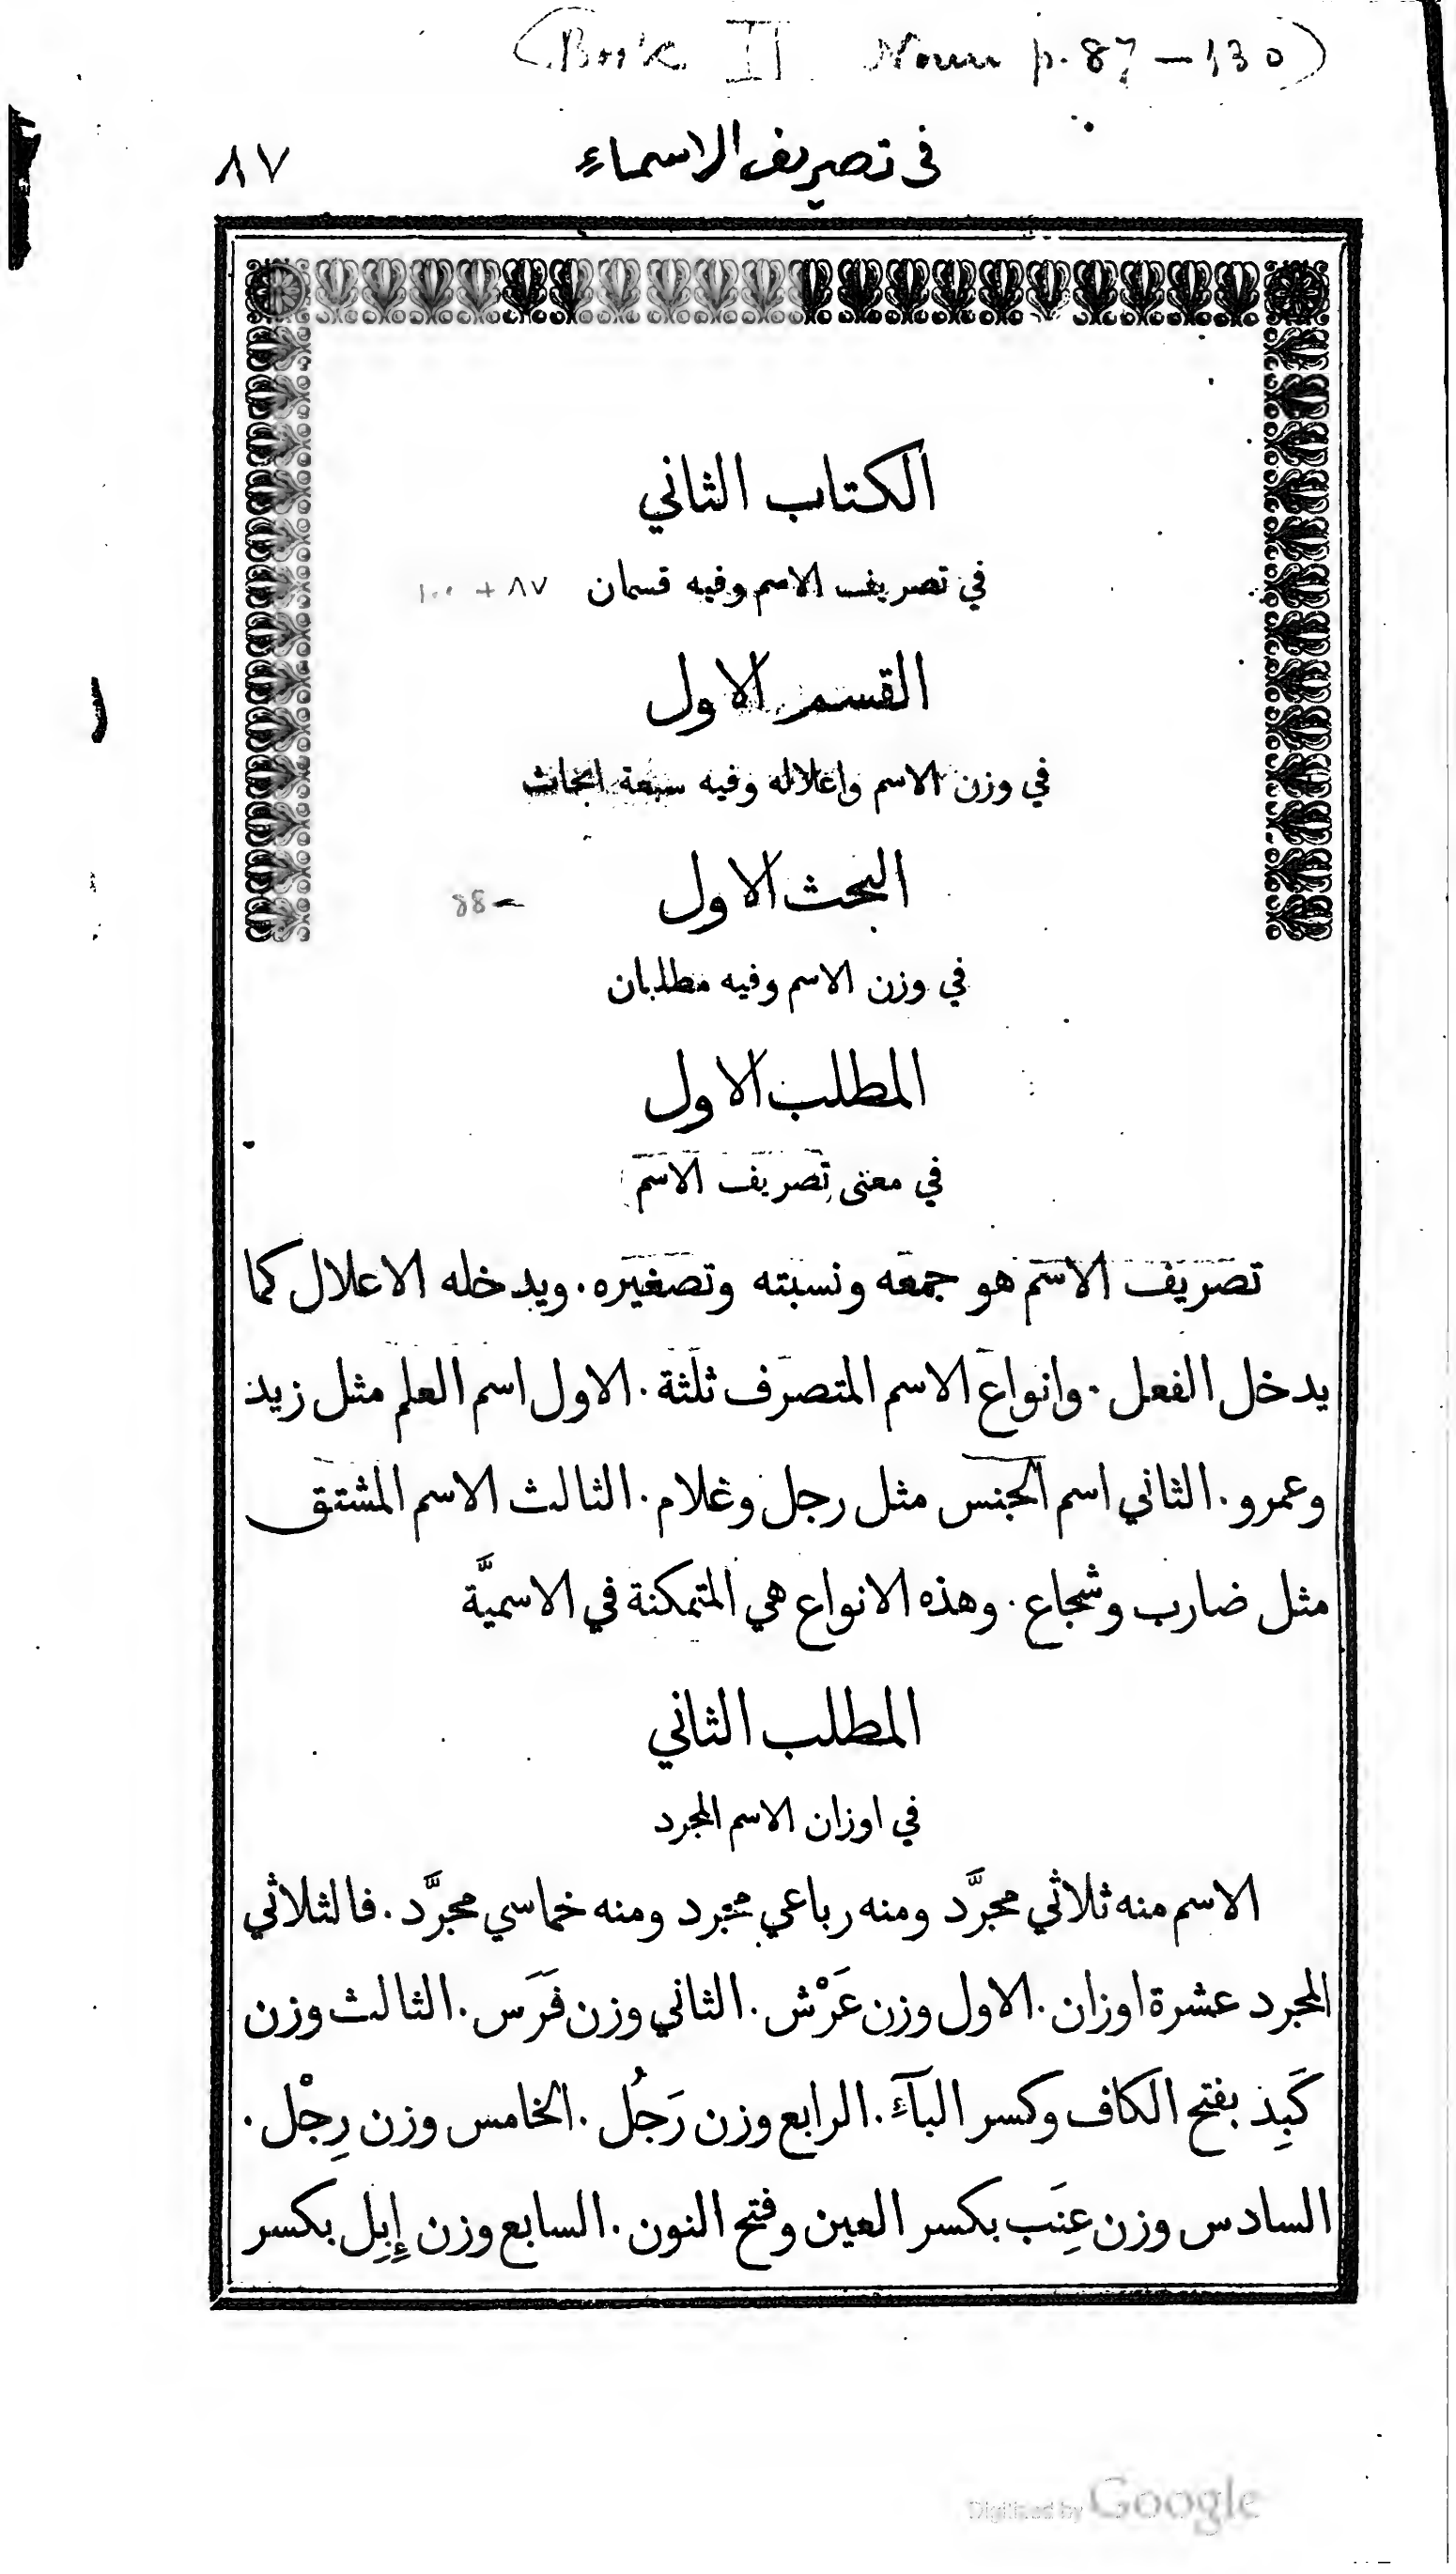 (Book II Noun p. 87 – 130)
في تصريف الاسماءِ ٨٧
الكتاب الثاني
في تصريف الاسم وفيه قسمان ٨٧ + ١٠٠
القسم الاول
في وزن الاسم واعلاله وفيه سبعة ابحاث
البحث الاول
88 –
في وزن الاسم وفيه مطلبان
المطلب الاول
في معنى تصريف الاسم
تصريف الاسم هو جمعه ونسبته وتصغيره. ويدخله الاعلال كما
يدخل الفعل. وانواع الاسم المتصرف ثلثة. الاول اسم العلم مثل زيد
وعمرو. الثاني اسم الجنس مثل رجل وغلام. الثالث الاسم المشتق
مثل ضارب وشجاع. وهذه الانواع هي المتمكنة في الاسميَّة
المطلب الثاني
في اوزان الاسم المجرد
الاسم منه ثلاثي مجرَّد ومنه رباعي مجرد ومنه خماسي مجرَّد. فالثلاثي
المجرد عشرة اوزان. الاول وزن عَرْش. الثاني وزن فَرَس. الثالث وزن
كَبِد بفتح الكاف وكسر البآءَ. الرابع وزن رَجُل. الخامس وزن رِجْل.
السادس وزن عِنَب بكسر العين وفتح النون. السابع وزن إِبِل بكسر
Digitized by Google